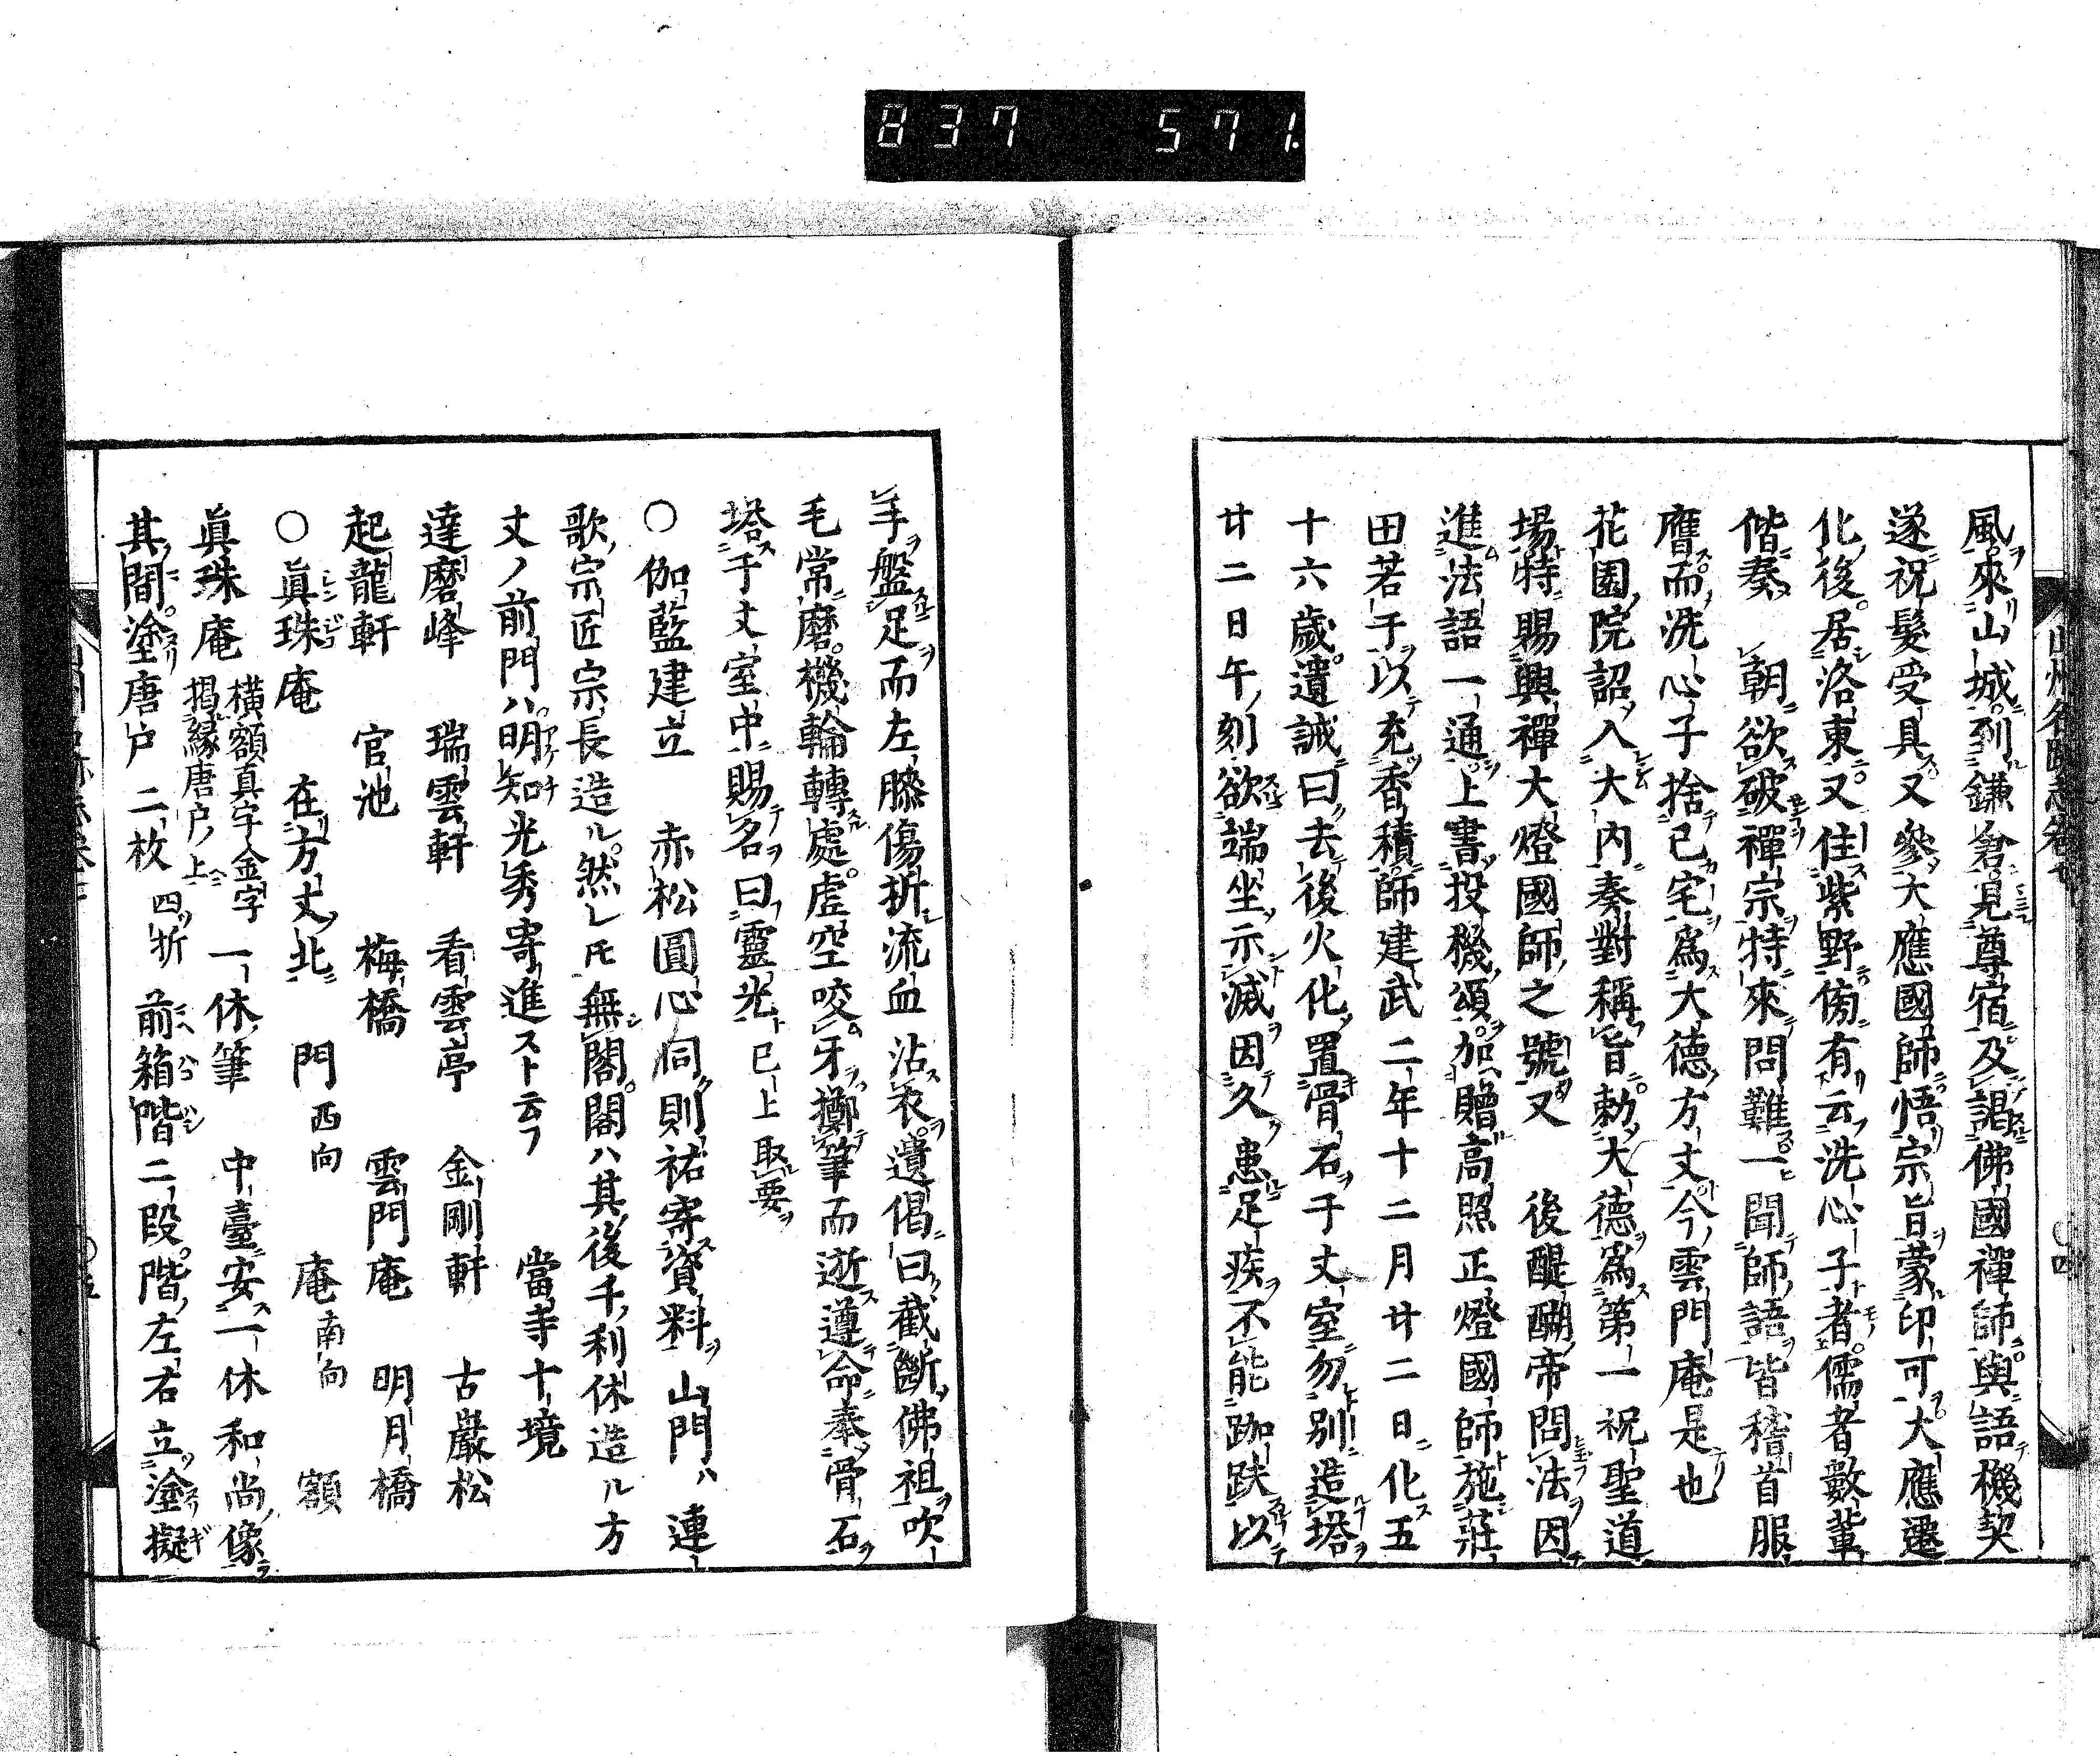 837 571.
風來山城到鎌倉見尊宿及謁佛國禪師與語機契
遂祝髮受具又參大應國師悟宗旨蒙印可大應遷
化後居洛東又住紫野傍有云洗心子者儒者數輩
偕奏 朝欲破禪宗特來問難一聞師語皆稽首服
膺而洗心子捨已宅爲大德方丈今雲門庵是也
花園院詔入大内奏對稱旨勅大德爲第一祝聖道
場特賜興禪大燈國師之號又 後醍醐帝問法因
進法語一通上書投機頌加贈高照正燈國師施莊
田若于以充香積師建武二年十二月廿二日化五
十六歲遺誡曰去後火化置骨石于丈室勿別造塔
廿二日午刻欲端坐示滅因久患足疾不能跏趺以
手盤足而左膝傷折流血沾衣遺偈曰截斷佛祖吹
毛常磨機輪轉處虛空咬牙擲筆而逝遵命奉骨石
塔于丈室中賜名曰靈光 已上取要
〇伽藍建立 赤松圓心同則祐寄資料山門ハ連
歌宗匠宗長造ル然レ𪜈無閣閣ハ其後千利休造ル方
丈ノ前門ハ明知光秀寄進スト云フ 當寺十境
達磨峰 瑞雲軒 看雲亭 金剛軒 古巖松
起龍軒 官池 梅橋 雲門庵 明月橋
〇眞珠庵 在方丈北 門西向 庵南向 額
眞珠庵 横額真字金字 揭縁唐戸上 一休筆 中臺安一休和尚像
其間塗唐戸二枚 四折 前箱階二段階左右立塗擬